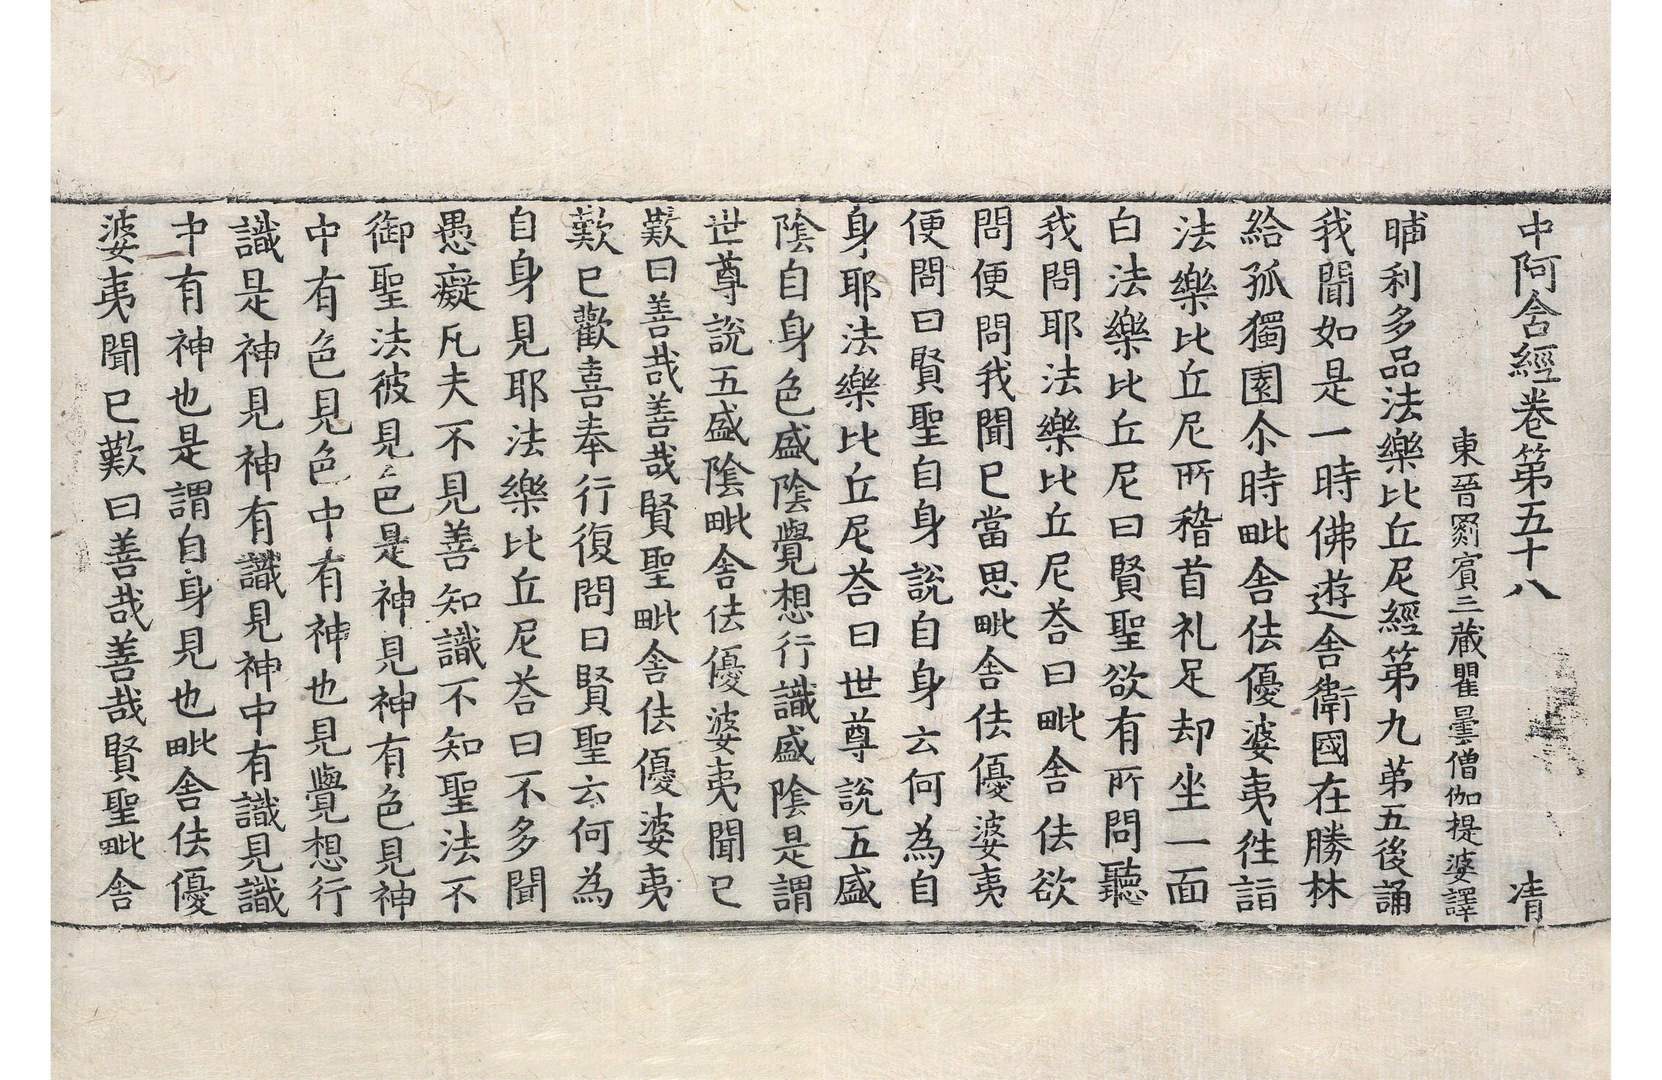 中阿含經卷第五十八　清
東晉罽賓三藏瞿曇僧伽提婆譯
晡利多品法樂比丘尼經第九第五後誦
我聞如是一時佛遊舍衛國在勝林
給孤獨園尒時毗舍佉優婆夷往詣
法樂比丘尼所稽首礼足却坐一面
白法樂比丘尼曰賢聖欲有所問聽
我問耶法樂比丘尼荅曰毗舍佉欲
問便問我聞已當思毗舍佉優婆夷
便問曰賢聖自身說自身云何為自
身耶法樂比丘尼荅曰世尊說五盛
陰自身色盛陰覺想行識盛陰是謂
世尊說五盛陰毗舍佉優婆夷聞已
歎曰善哉善哉賢聖毗舍佉優婆夷
歎已歡喜奉行復問曰賢聖云何為
自身見耶法樂比丘尼荅曰不多聞
愚癡凡夫不見善知識不知聖法不
御聖法彼見色是神見神有色見神
中有色見色中有神也見覺想行
識是神見神有識見神中有識見識
中有神也是謂自身見也毗舍佉優
婆夷聞已歎曰善哉善哉賢聖毗舍